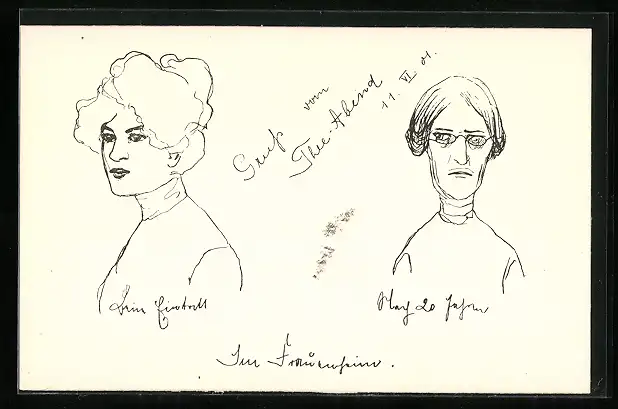 Gruß vom
Thee-Abend
11. VI. 01.
Beim Eintritt
Nach 20 Jahren
Im Frauenheim.